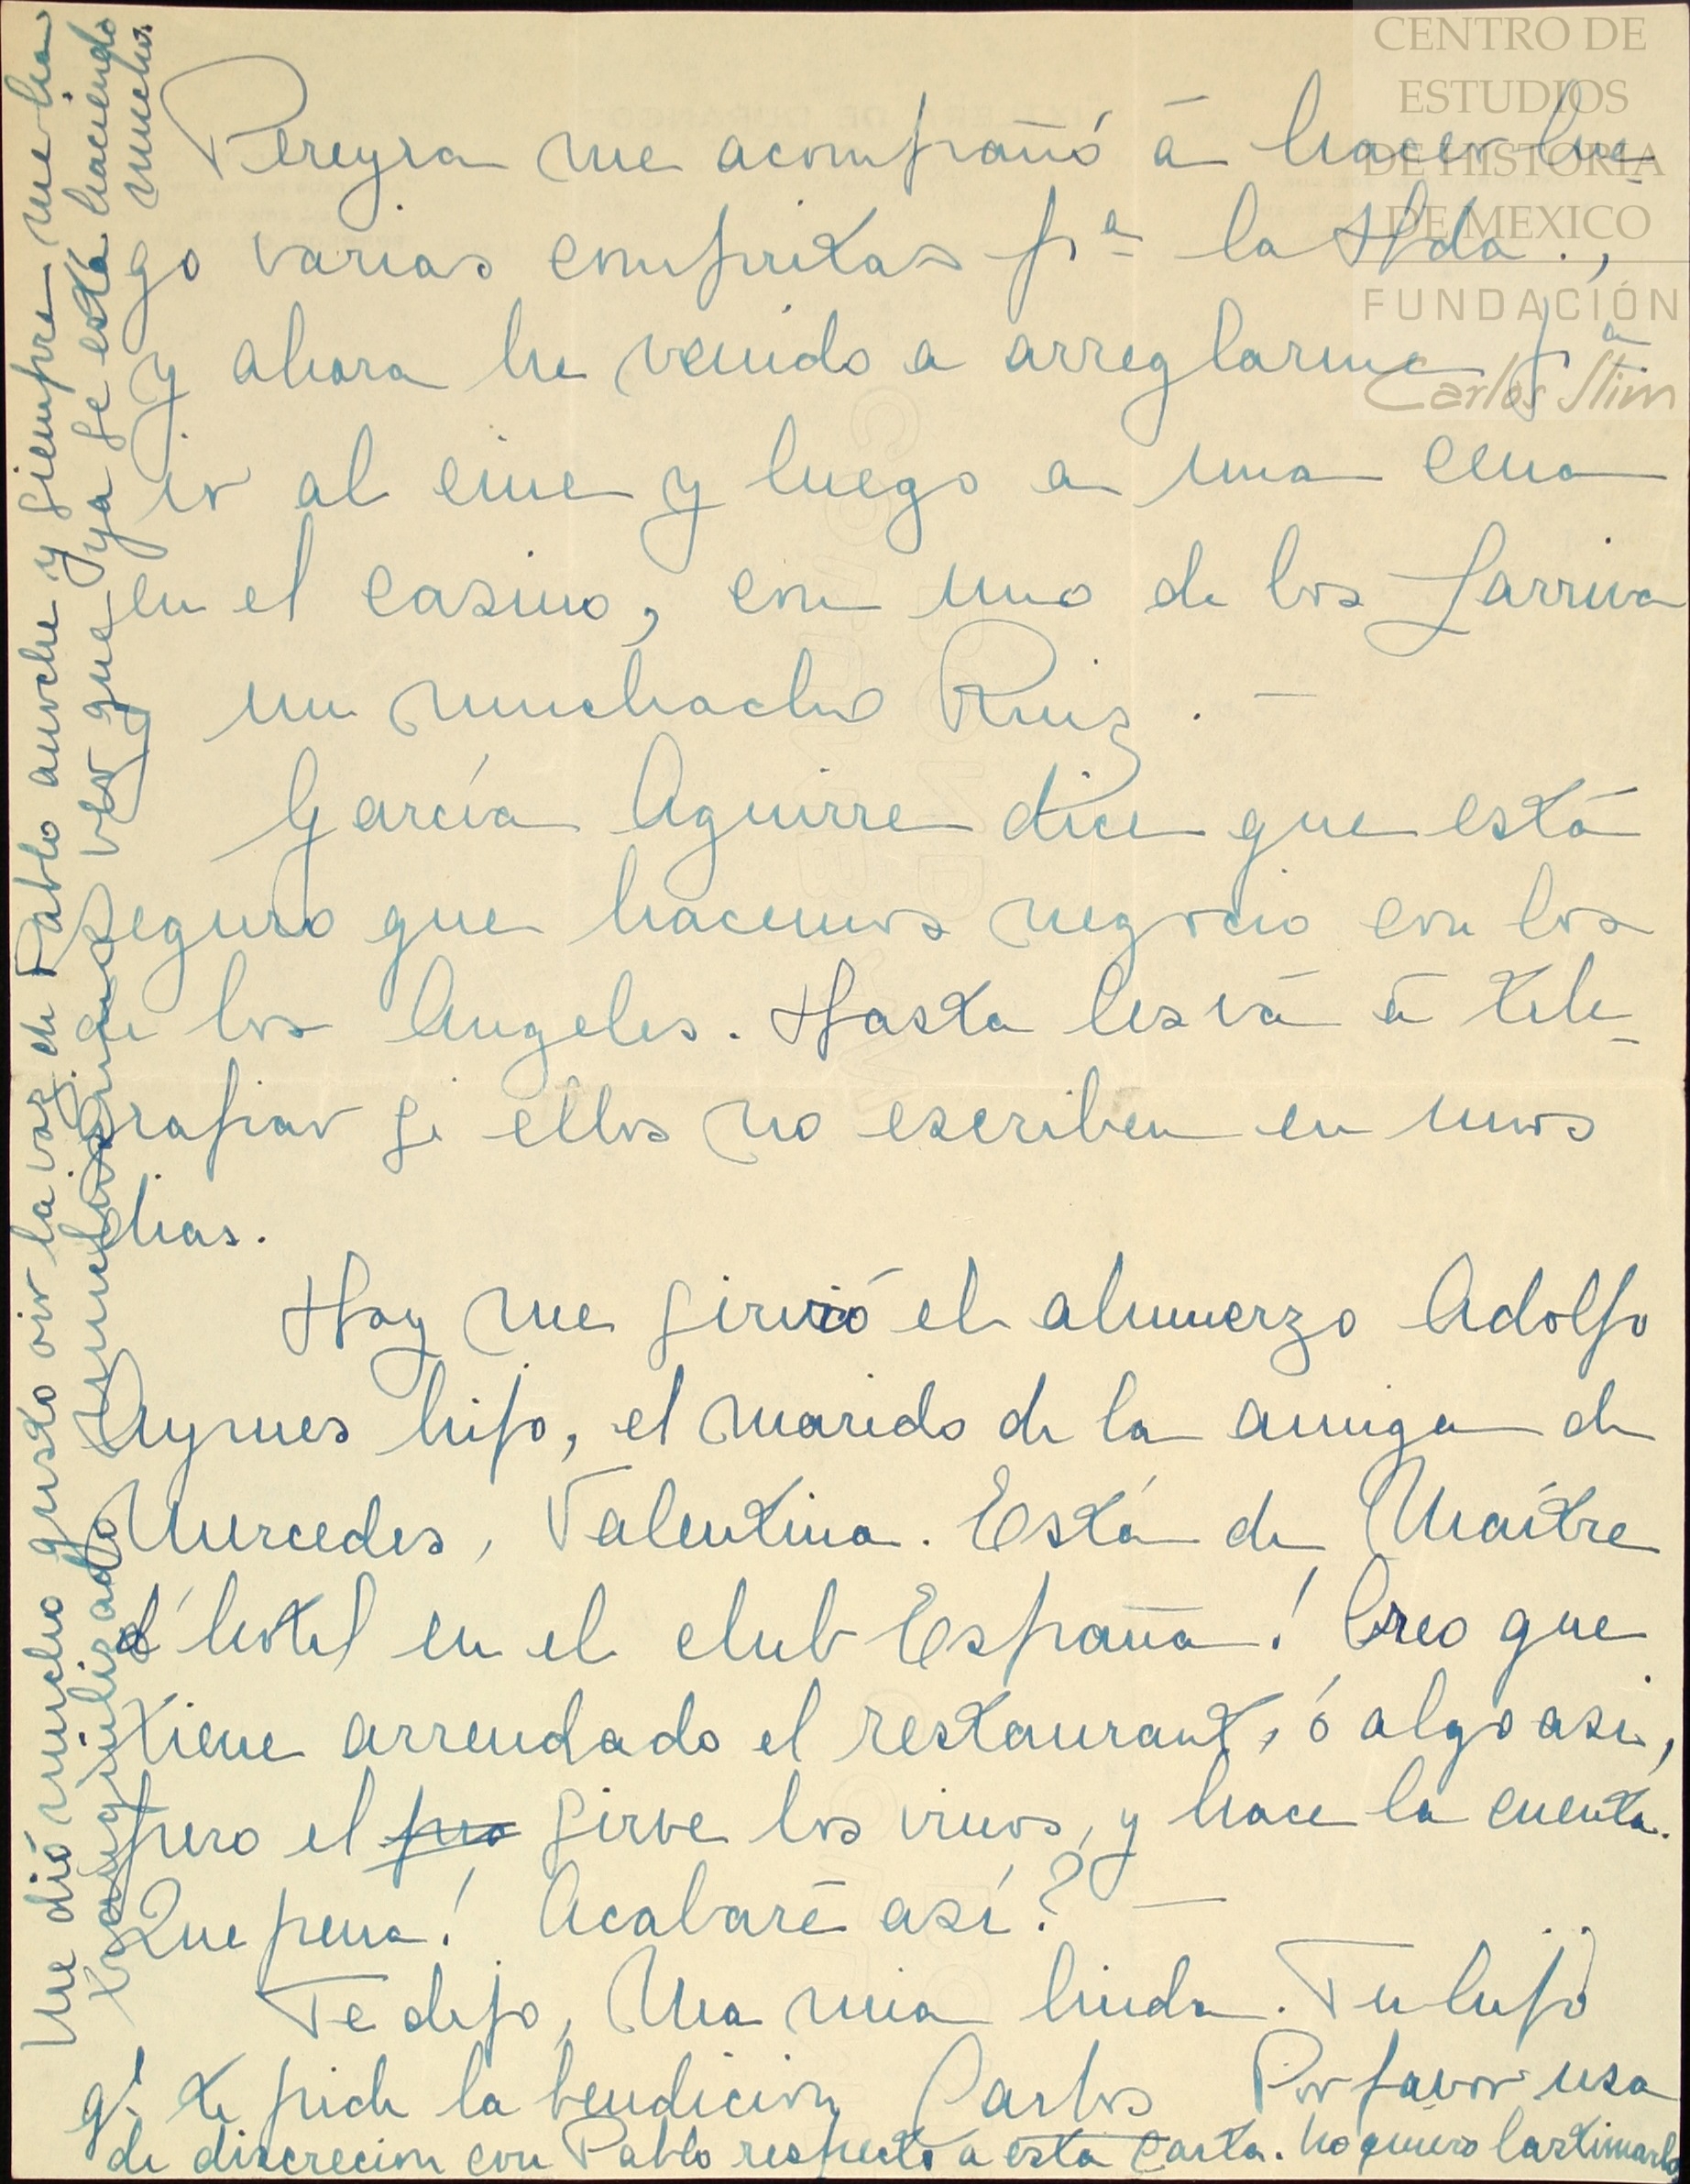 Pereyra me acompañó á hacer lue-
go varias compritas pª la Hda.,
y ahora he venido a arreglarme pª
ir al cine y luego a una cena
en el casino, con uno de los Larriva
y un muchacho Ruiz. —
García Aguirre dice que está
seguro que hacemos negocio con los
de los Angeles. Hasta les vá á tele-
grafiar si ellos no escriben en unos
dias.
Hoy me sirvió el almuerzo Adolfo
Aymes hijo, el marido de la amiga de
Mercedes, Valentina. Está de Maitre
d'hotel en el club España! Creo que
tiene arrendado el restaurant, ó algo asi,
pero el pro sirve los vinos, y hace la cuenta.
Que pena! Acabaré así? —
Te dejo, Ma mia linda. Tu hijo
q! te pide la bendicion Carlos Por favor usa
de discrecion con Pablo respecto a esta carta. No quiero lastimarlo
Me dió mucho gusto oir la voz de Pablo anoche y siempre me ha
tranquilizado muchisimo ver que ya se está haciendo
mucho.
CENTRO DE
ESTUDIOS
DE HISTORIA
DE MEXICO
FUNDACIÓN
Carlos Slim